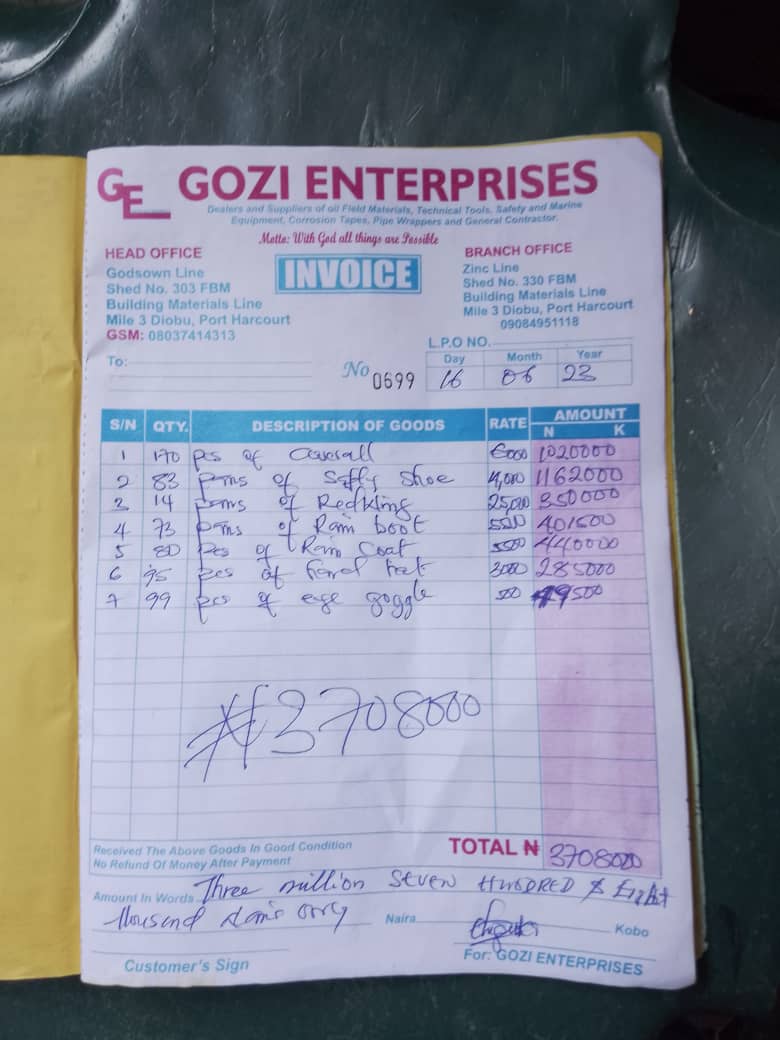 GE GOZI ENTERPRISES
Dealers and Suppliers of oil Field Materials, Technical Tools, Safety and Marine
Equipment, Corrosion Tapes, Pipe Wrappers and General Contractor.
Motto: With God all things are Possible
HEAD OFFICE
Godsown Line
Shed No. 303 FBM
Building Materials Line
Mile 3 Diobu, Port Harcourt
GSM: 08037414313
INVOICE
BRANCH OFFICE
Zinc Line
Shed No. 330 FBM
Building Materials Line
Mile 3 Diobu, Port Harcourt
09084951118
L.P.O NO.
To:
No 0699
Day Month Year
16 06 23
S/N QTY. DESCRIPTION OF GOODS RATE AMOUNT
N K
1 170 pcs of Overall 6000 1020000
2 83 of Safty Shoe 14,000 1162000
3 14 of Redking 25,000 350000
4 73 of Rain boot 5500 401500
5 80 pcs of Rain Coat 5500 440000
6 95 pcs of 3000 285000
7 99 pcs of eye goggle 500 49500
₦3708000
Received The Above Goods In Good Condition
No Refund Of Money After Payment
TOTAL ₦ 3708000
Amount In Words Three million SEVEN HUNDRED & Eight
thousand only Naira Kobo
Customer's Sign
For: GOZI ENTERPRISES